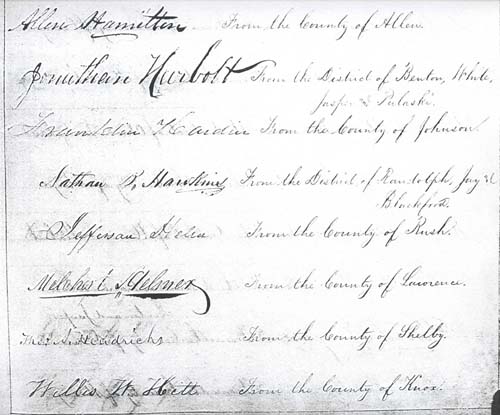 Allen Hamilton From the County of Allen.
Jonathan Harbolt From the District of Benton, White,
Jasper & Pulaski.
Franklin Hardin From the County of Johnson.
Nathan B. Hawkins From the District of Randolph, Jay &
Blackford.
Jefferson Helm From the County of Rush.
Melchert Helmer From the County of Lawrence.
Tho: A. Hendricks From the County of Shelby.
Willis W. Hitt From the County of Knox.